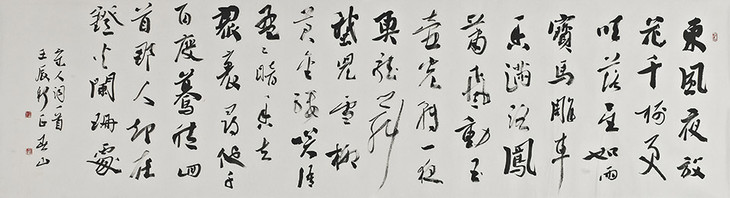 東風夜放
花千樹更
吹落星如雨
寶馬雕車
香滿路鳳
簫聲動玉
壺光轉一夜
魚龍舞
蛾兒雪柳
黃金縷笑語
盈々暗香去
眾裏尋他千
百度驀然回
首那人卻在
燈火闌珊處
宋人詞一首
壬辰